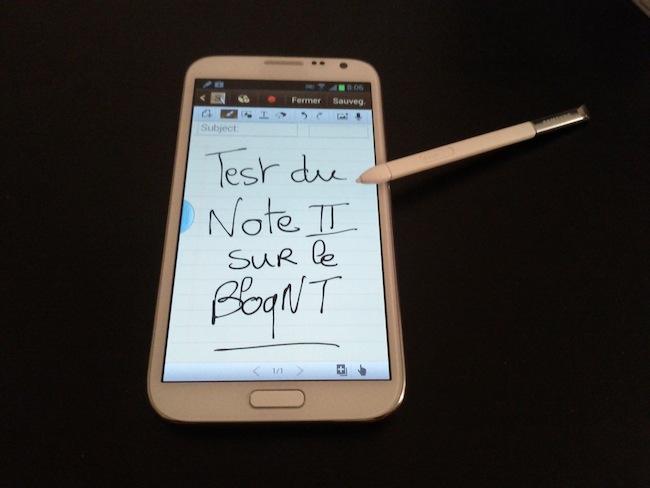 8:06
Fermer Sauveg.
Subject:
Test du
Note II
sur le
BlogNT
1/1
SAMSUNG